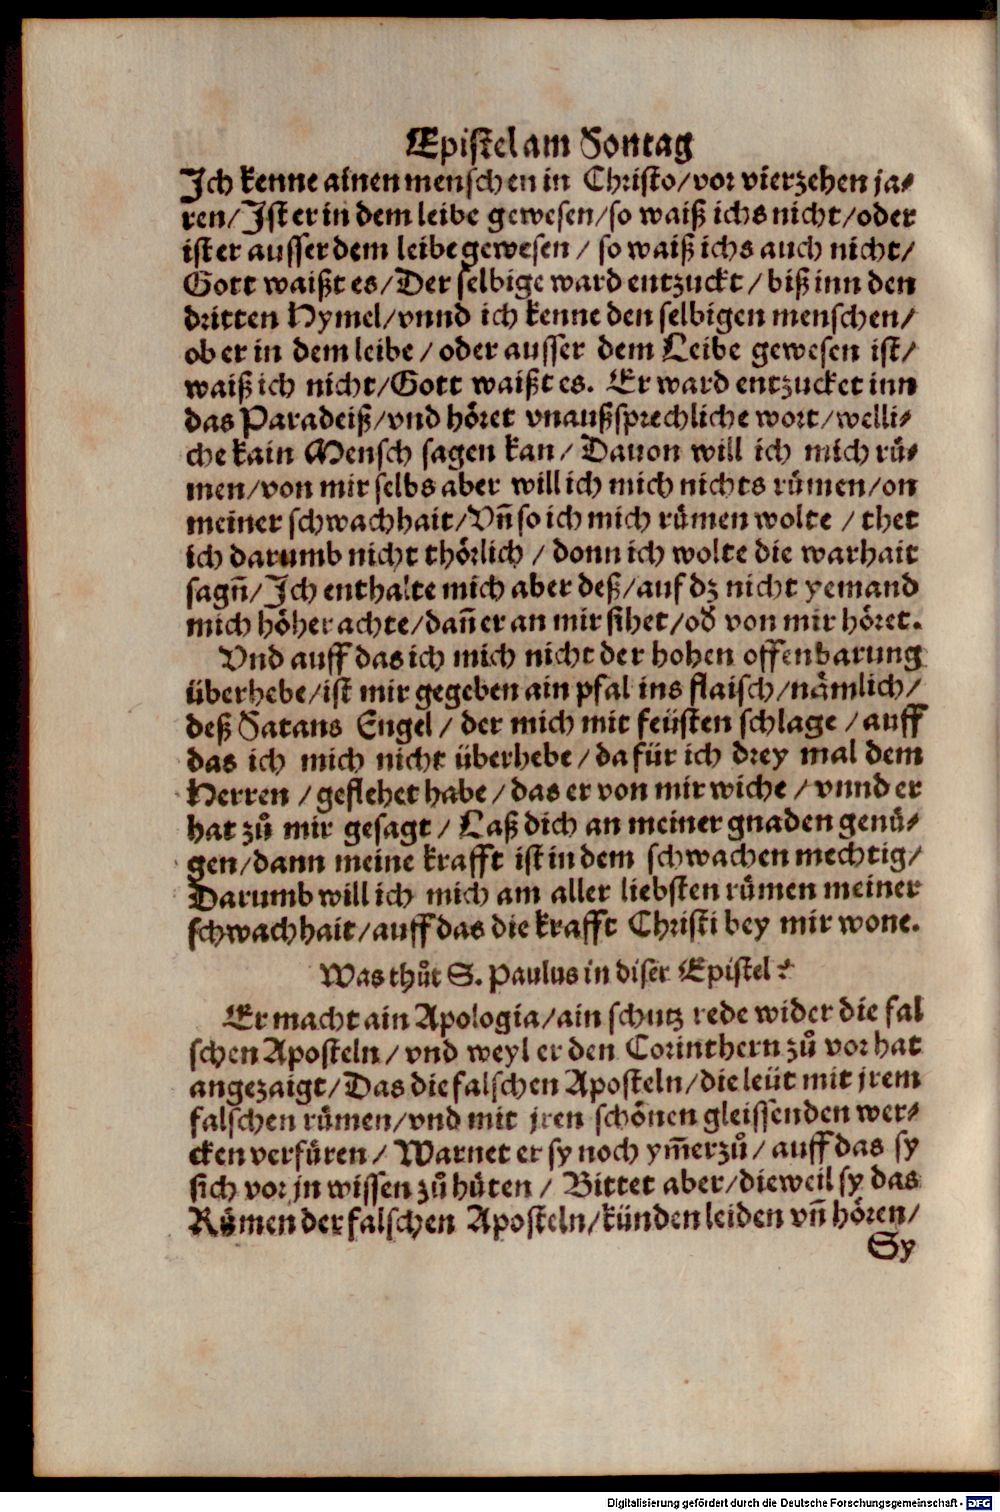 Epistel am Sontag
Jch kenne ainen menschen in Christo/vor vierzehen ja⸗
ren/Jst er in dem leibe gewesen/so waiß ichs nicht/oder
ist er ausser dem leibe gewesen / so waiß ichs auch nicht/
Gott waißt es/Der selbige ward entzuckt / biß inn den
dritten Hymel/vnnd ich kenne den selbigen menschen/
ob er in dem leibe / oder ausser dem Leibe gewesen ist/
waiß ich nicht/Gott waißt es. Er ward entzucket inn
das Paradeiß/vnd höret vnaußsprechliche wort/welli⸗
che kain Mensch sagen kan / Dauon will ich mich rü⸗
men/von mir selbs aber will ich mich nichts rümen/on
meiner schwachhait/Vn̄ so ich mich rümen wolte / thet
ich darumb nicht thörlich / donn ich wolte die warhait
sagn̄/Jch enthalte mich aber deß/auf dz nicht yemand
mich höher achte/dan̄ er an mir sihet/od̄ von mir höret.
Vnd auff das ich mich nicht der hohen offenbarung
überhebe/ist mir gegeben ain pfal ins flaisch/nämlich/
deß Satans Engel / der mich mit feüsten schlage / auff
das ich mich nicht überhebe / dafür ich drey mal dem
Herren / geflehet habe / das er von mir wiche / vnnd er
hat zů mir gesagt / Laß dich an meiner gnaden genü⸗
gen/dann meine krafft ist in dem schwachen mechtig/
Darumb will ich mich am aller liebsten rümen meiner
schwachhait/auff das die krafft Christi bey mir wone.
Was thůt S. Paulus in diser Epistel?
Er macht ain Apologia/ain schutz rede wider die fal
schen Aposteln / vnd weyl er den Corinthern zů vor hat
angezaigt/Das die falschen Aposteln/die leüt mit jrem
falschen rümen/vnd mit jren schönen gleissenden wer⸗
cken verfüren / Warnet er sy noch ym̄erzů / auff das sy
sich vor jn wissen zů hüten / Bittet aber/dieweil sy das
Rümen der falschen Aposteln/künden leiden vn̄ hören/
Sy
Digitalisierung gefördert durch die Deutsche Forschungsgemeinschaft - DFG